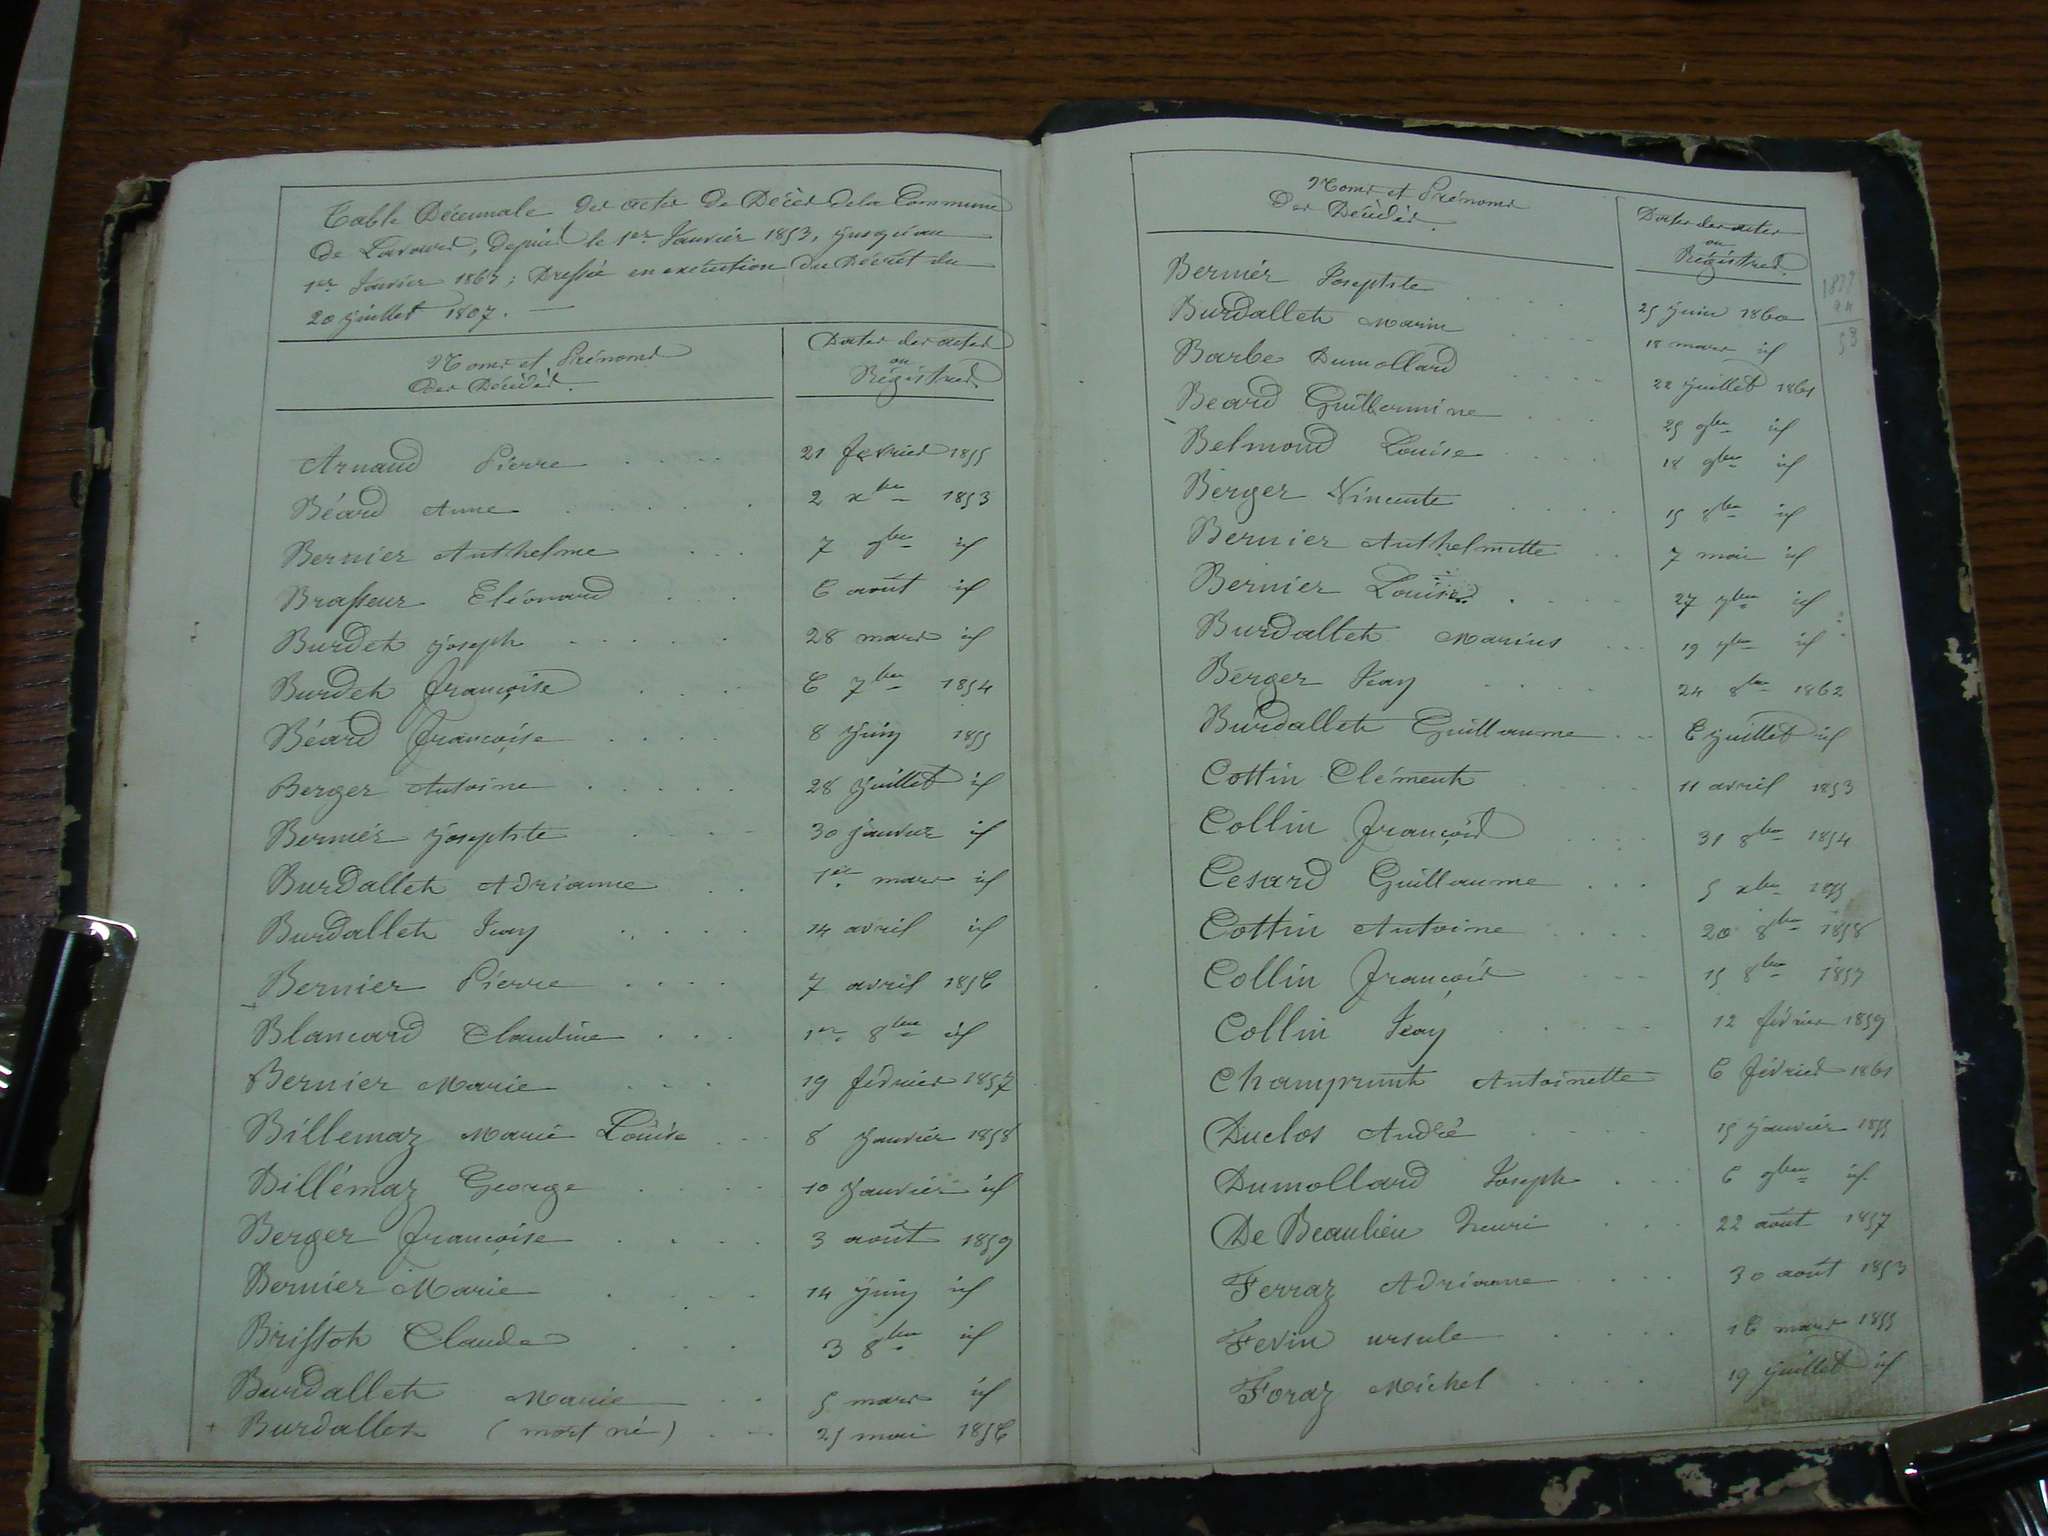 Table Décennale des actes de Décès de la Commune
de Lavours, depuis le 1er Janvier 1853, jusqu'au
1er Janvier 1863; Dressée en exécution du Décret du
20 juillet 1807. —
Noms et Prénoms
des Décédés.
Dates des actes
ou
Régistres.
Arnaud Pierre 21 fevrier 1855
Béard Anne 2 xbre 1853
Bernier Anthelme 7 9bre id
Brasseur Eléonard 6 août id
Burdet joseph 28 mars id
Burdet françoise 6 7bre 1854
Béard françoise 8 juin 1855
Berger Antoine 28 juillet id
Bernier josephte 30 janvier id
Burdallet Adrianne 1er mars id
Burdallet Jean 14 avril id
Bernier Pierre 7 avril 1856
Blancard Claudine 1er 8bre id
Bernier Marie 19 février 1857
Billemaz Marie Louise 8 janvier 1858
Billémaz George 10 janvier id
Berger françoise 3 août 1859
Bernier Marie 14 juin id
Brissot Claude 3 8bre id
Burdallet Marie 5 mars id
+ Burdallet (mort né) 25 mai 1856
Noms et Prénoms
des Décédés.
Dates des actes
ou
Régistres.
Bernier Josephte 25 juin 1860
Burdallet Marin 18 mars id
Barbe Dumollard 22 juillet 1861
Beard Guillermine 25 9bre id
Belmond Louise 18 9bre id
Berger Vincente 15 8bre id
Bernier Anthelmette 7 mai id
Bernier Louise 27 7bre id
Burdallet Marius 19 7bre id
Berger Jean 24 8bre 1862
Burdallet Guillaume 6 juillet id
Cottin Clément 11 avril 1853
Collin françois 31 8bre 1854
Cesard Guillaume 5 xbre 1855
Cottin Antoine 20 8bre 1858
Collin françois 15 8bre 1857
Collin Jean 12 février 1859
Champrunt Antoinette 6 février 1861
Duclos André 15 janvier 1855
Dumollard Joseph 6 9bre id
De Beaulieu henri 22 août 1857
Ferraz Adrianne 30 août 1853
Fevin ursule 16 mars 1855
Foraz Michel 19 juillet id